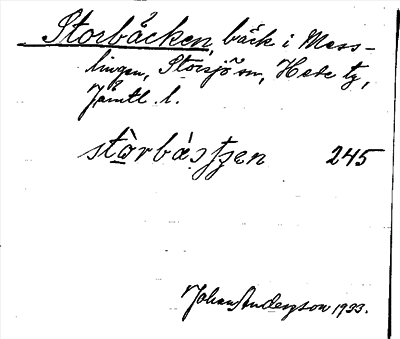 Storbäcken, bäck i Mess-
lingen, Storsjö sn, Hede tg,
Jämtl. l.
stòrbàʂʈʂen 245
Johan Anderzson 1933.